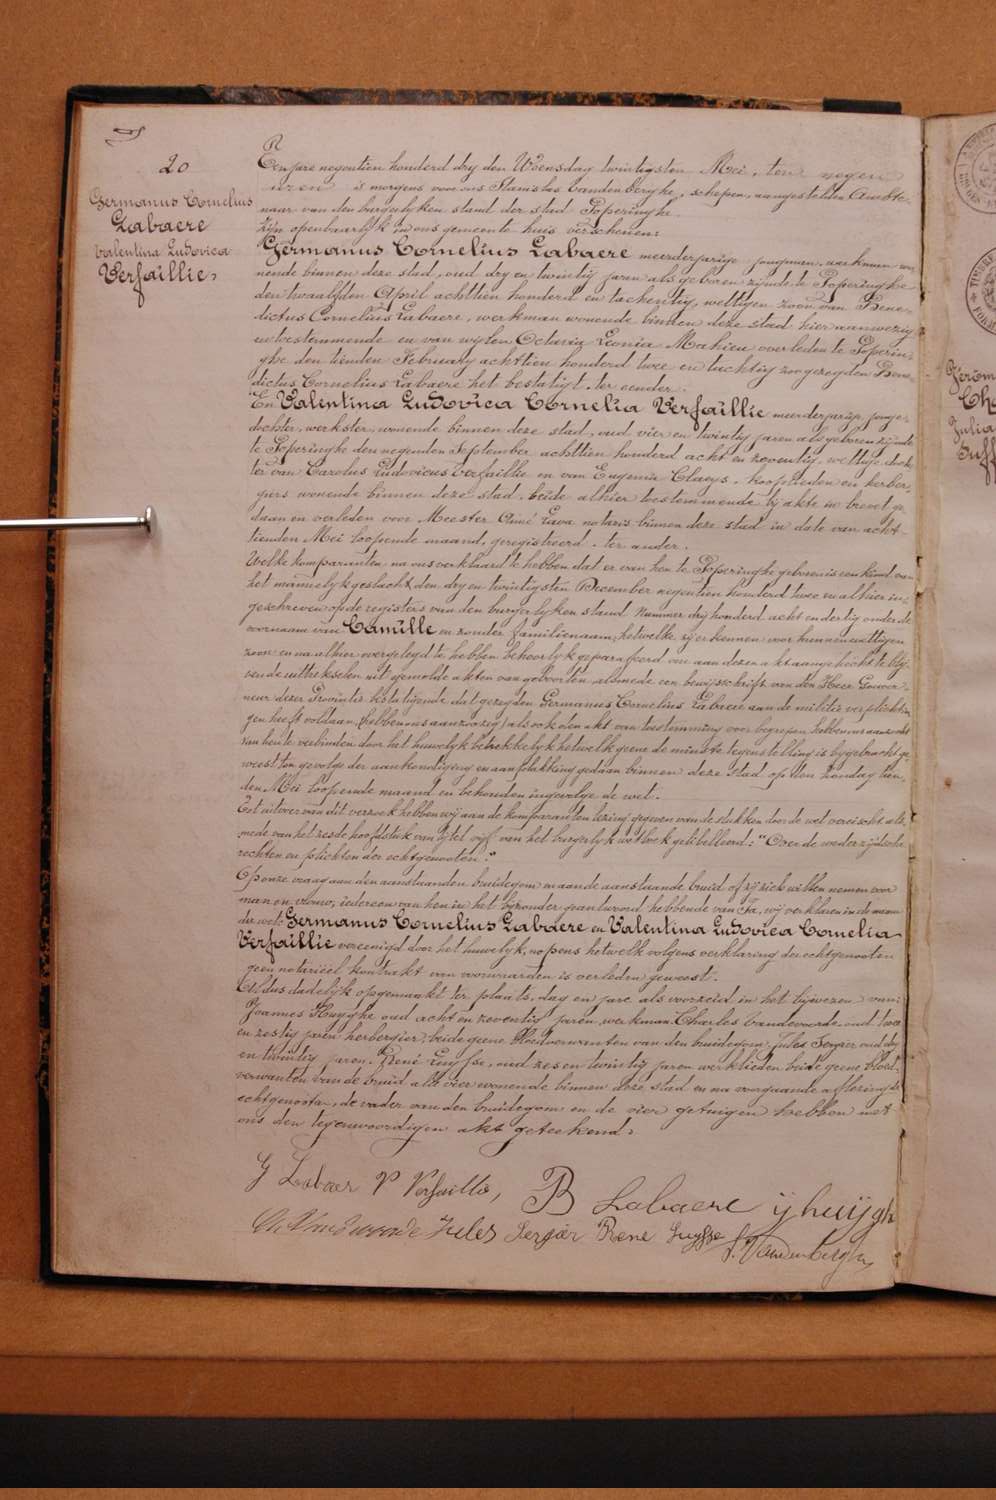 20
Germanus Cornelius
Labaere
Valentina Ludovica
Verfaillie,
Ten jare negentien honderd dry den Woensdag twintigsten Mei, ten negen
uren 's morgens voor ons Stanislas Vandenberghe, schepen, aangestelden Ambte-
naar van den burgerlyken stand der stad Poperinghe
zyn openbaarlyk in ons gemeente huis verschenen:
Germanus Cornelius Labaere meerderjarige jongman, werkman wo-
nende binnen deze stad, oud dry en twintig jaren als geboren zynde te Poperinghe
den twaalfden April achttien honderd en tachentig, wettigen zoon van Bene-
dictus Cornelius Labaere, werkman wonende binnen deze stad hier aanwezig
en toestemmende en van wylen Octavia Leonia Mahieu overleden te Poperin-
ghe den tienden February achttien honderd twee en tachtig zoo gezegden Bene-
dictus Cornelius Labaere het bestatigt. ter eender.
En Valentina Ludovica Cornelia Verfaillie meerderjarige jonge
dochter, werkster, wonende binnen deze stad, oud vier en twintig jaren als geboren zynde
te Poperinghe den negenden September achttien honderd acht en zeventig, wettige doch-
ter van Carolus Ludovicus Verfaillie en van Eugenia Claeys, kooplieden en herber-
giers wonende binnen deze stad, beide alhier toestemmende by akte in brevet ge-
daan en verleden voor Meester Aimé Lava notaris binnen deze stad in date van acht-
tienden Mei loopende maand, geregistreerd. ter ander.
Welke komparanten na ons verklaard te hebben dat er van hen te Poperinghe geboren is een kind van
het mannelyk geslacht den dry en twintigsten December negentien honderd twee en alhier in-
geschreven op de registers van den burgerlyken stand nummer dry honderd acht en dertig onder de
voornaam van Camille en zonder familienaam, hetwelke zy erkennen voor hunnen wettigen
zoon en na alhier overgelegd te hebben behoorlyk geparafeerd om aan dezen akt aangehecht te bly-
ven de uittrekselen uit gemelde akten van geboorten, alsmede een bewysschrift van den Heer Gouver-
neur dezer Provintie bestatigende dat gezegden Germanus Cornelius Labaere aan de militie verplichtin-
gen heeft voldaan, hebben ons aanzoozegd als ook den akt van toestemming voor begrepen hebben ons aanzocht
van hen te verbinden door het huwelyk betrekkelyk hetwelk geene de minste tegenstelling is bygebracht ge-
weest ten gevolge der aankondiging en aanplakking gedaan binnen deze stad op den Zondag tien-
den Mei loopende maand en behouden ingevolge de wet.
Tot uitvoer van dit verzoek hebben wy aan de komparanten lezing gegeven van de stukken door de wet vereischt als-
mede van het zesde hoofdstuk van tytel vyf van het burgerlyk wetboek getibelleerd: "Over de wederzydsche
rechten en plichten der echtgenooten."
Op onze vraag aan den aanstaanden bruidegom en aan de aanstaande bruid of zy zich willen nemen voor
man en vrouw, iedereen van hen in het byzonder geantwoord hebbende van Ja, wy verklaren in de naam
der wet: Germanus Cornelius Labaere en Valentina Ludovica Cornelia
Verfaillie vereenigd door het huwelyk, nopens hetwelk volgens verklaring der echtgenooten
geen notarieel kontrakt van voorwaarden is verleden geweest.
Aldus dadelyk opgemaakt ter plaats, dag en jare als voorzeid in het bywezen van:
Joannes Huyghe oud acht en zeventig jaren, werkman, Charles Vandevoorde, oud twee
en zestig jaren herbergier, beide geene bloedverwanten van den bruidegom, Jules Sergier oud dry
en twintig jaren, René Luysse, oud zes en twintig jaren werklieden beide geene bloed-
verwanten van de bruid alle vier wonende binnen deze stad en na voorgaande aflezing de
echtgenooten, de vader van den bruidegom en de vier getuigen hebben met
ons den tegenwoordigen akt geteekend.
G Labaer V Verfaillie, B Labaere ij huijgh
Ch Vandevoorde Jules Sergier René Luysse S. Vandenberghe
Julia